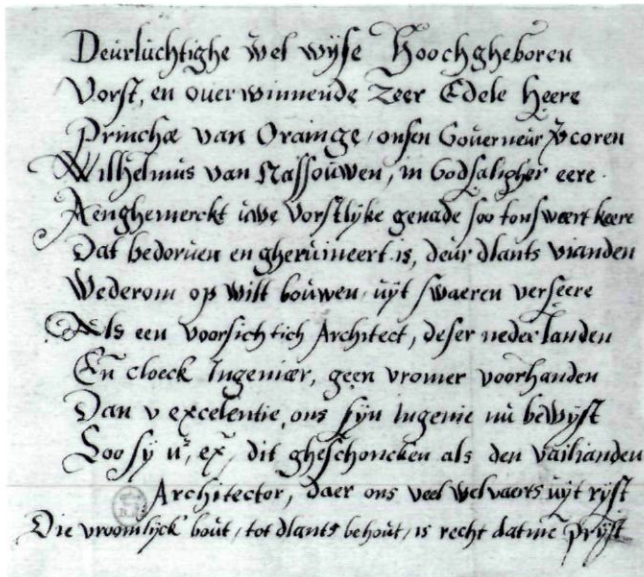 Deurluchtighe wel wÿse Hoochgheboren
Vorst, en ouerwinnende zeer Edele heere
Princhæ van Orainge, onsen Gouerneur vcoren
Wilhelmus van Nassouwen, in Godsaligher eere.
Aenghemerckt uwe Vorstlÿke genade soo tonswaert keere
Dat bedoruen en gheruineert is, deur dlants vianden
Wederom op wilt bouwen, uÿt swaeren verseere
Als een voorsichtich Architect, deser nederlanden
En̄ cloeck Ingeniær, geen vromer voorhanden
Dan v excelentie, ons sÿn Ingenie nu bewÿst
Soo sÿ ur̄, ex̄, dit gheschoncken als den vailianden
Architector, daer ons veel welvaerts uÿt rÿst
Die vroomlÿck bout, tot dlants behout, is recht datme prÿst